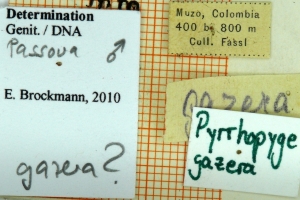 Determination
Genit. / DNA
Passova ♂
E. Brockmann, 2010
gazera?
Muzo, Colombia
400 bis 800 m
Coll. Fassl
gazera
Pyrrhopyge
gazera